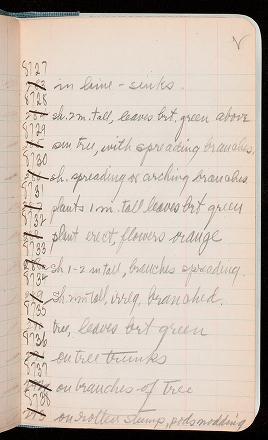 8727
in lime - sinks.
8728
sh. 2 m. tall, leaves brt. green above
8729
sm tree, with spreading branches,
8730
sh. spreading or arching branches
8731
plants 1 m. tall leaves brt green
8732
plant erect, flowers orange
8733
sh 1-2 m tall, branches spreading.
8734
sh. 2m tall, irreg. branched.
8735
tree, leaves brt green
8736
on tree trunks
8737
on branches of tree
8738
on rotten stump, pods nodding